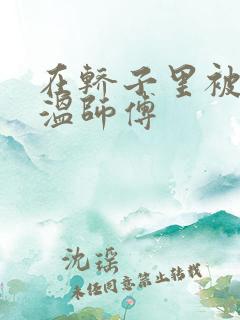 在轿子里被
温师傅
沈瑶
未经同意禁止转载